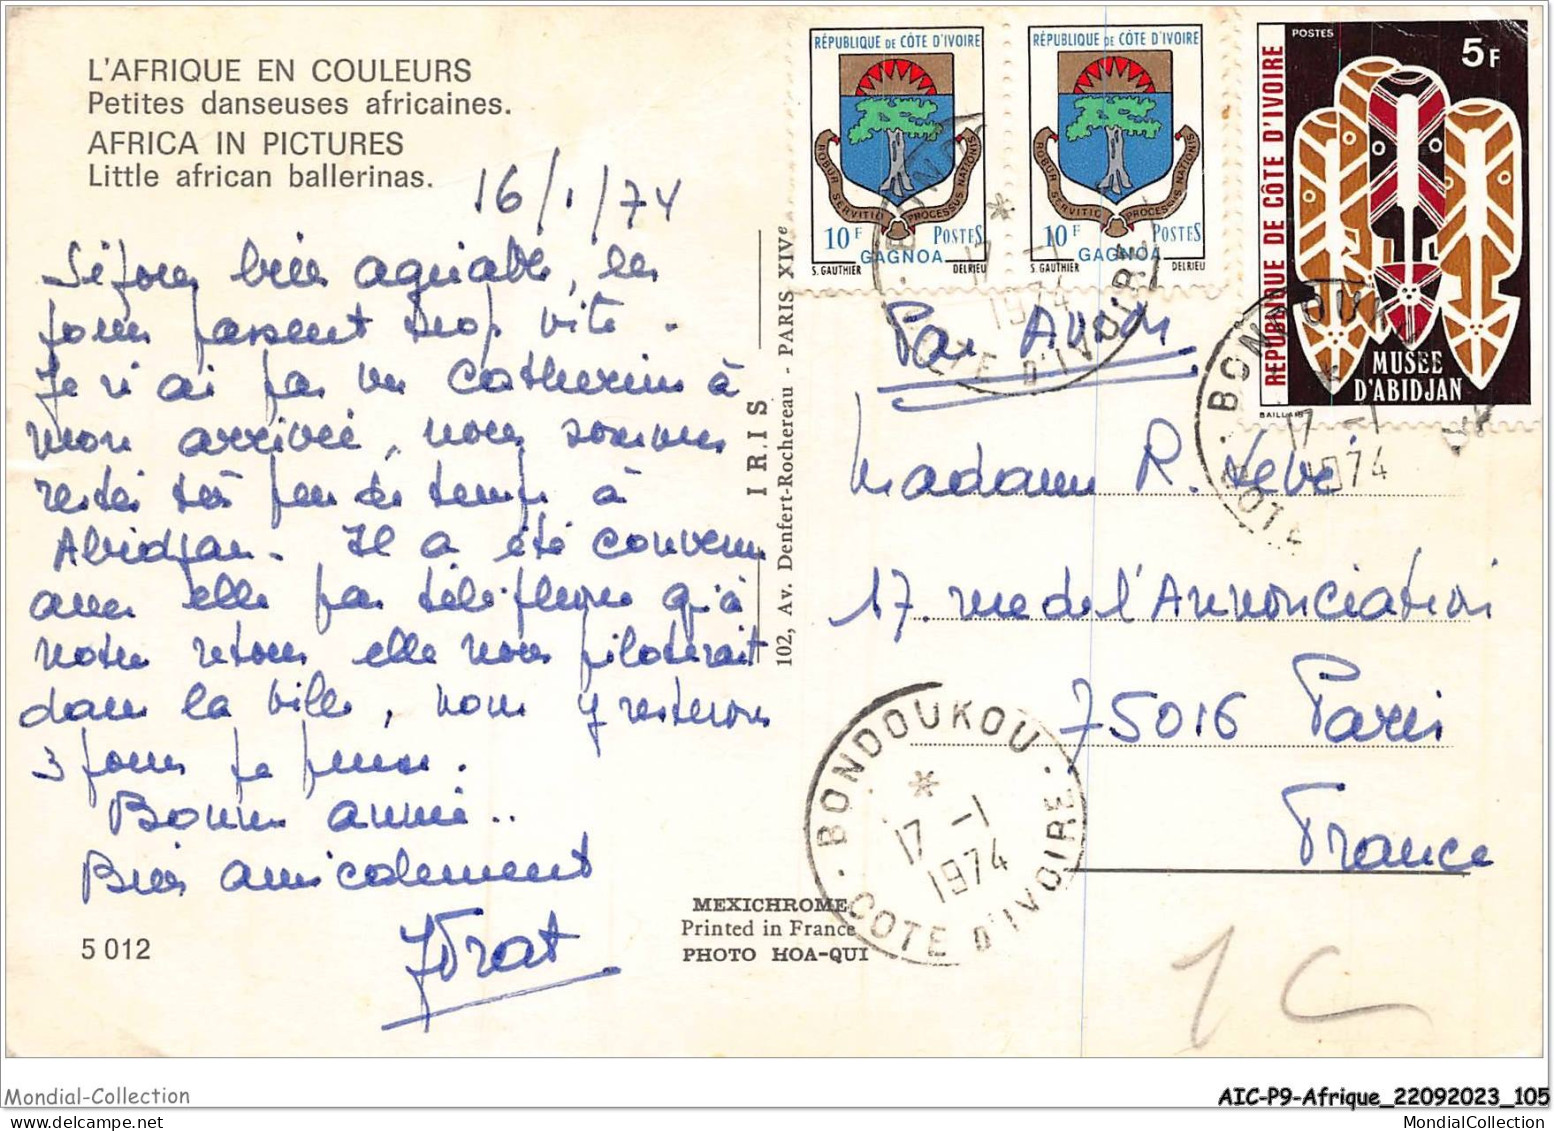 L'AFRIQUE EN COULEURS
Petites danseuses africaines.
AFRICA IN PICTURES
Little african ballerinas.
16/1/74
Séjour bien agréable, les
jours passent trop vite.
Je n'ai pas vu Catherine à
mon arrivée, nous sommes
restés très peu de temps à
Abidjan. Il a été convenu
avec elle par téléphone qu'à
notre retour elle nous piloterait
dans la ville, nous y resterons
3 jours je pense.
Bonne année..
Bien amicalement
5 012
IRIS
102, Av. Denfert-Rochereau - PARIS XIVe
MEXICHROME
Printed in France
PHOTO HOA-QUI
RÉPUBLIQUE DE CÔTE D'IVOIRE
ROBUR SERVITIO PROCESSUS NATIONIS
10 F POSTES
GAGNOA
S. GAUTHIER DELRIEU
RÉPUBLIQUE DE CÔTE D'IVOIRE
ROBUR SERVITIO PROCESSUS NATIONIS
10 F POSTES
GAGNOA
S. GAUTHIER DELRIEU
POSTES
5F
REPUBLIQUE DE CÔTE D'IVOIRE
MUSEE
D'ABIDJAN
BAILLAIS
Par Avion
Madame R.
17. rue de l'Annonciation
75016 Paris
France
BONDOUKOU
17 -1
1974
COTE D'IVOIRE
17 -1
1974
COTE D'IVOIRE
BONDOUKOU
17 -1
1974
COTE
1C
Mondial-Collection
AIC-P9-Afrique_22092023_105
MondialCollection.com